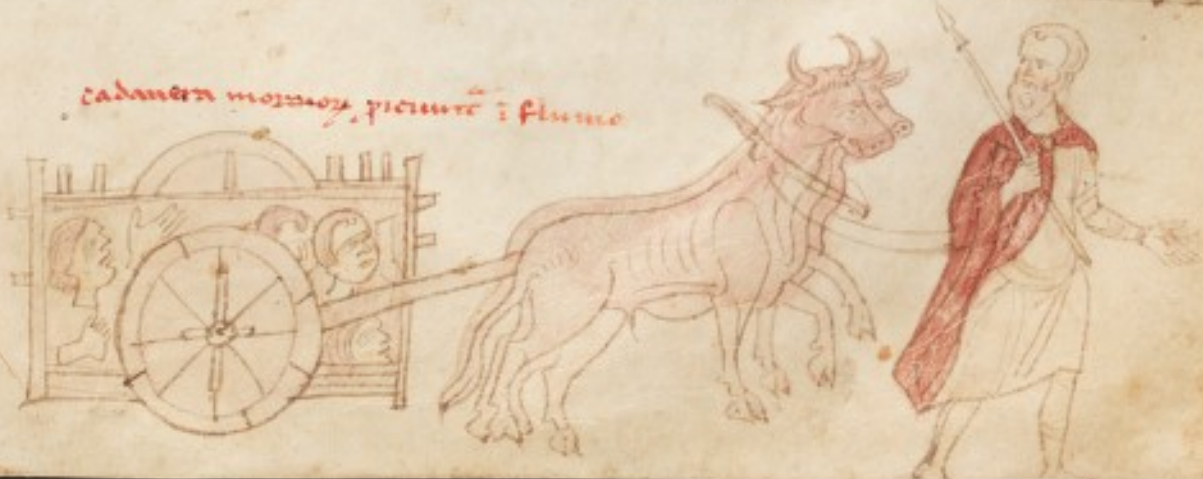 cadavera mortuoꝝ ꝓiciunt̃ ĩ flumĩe